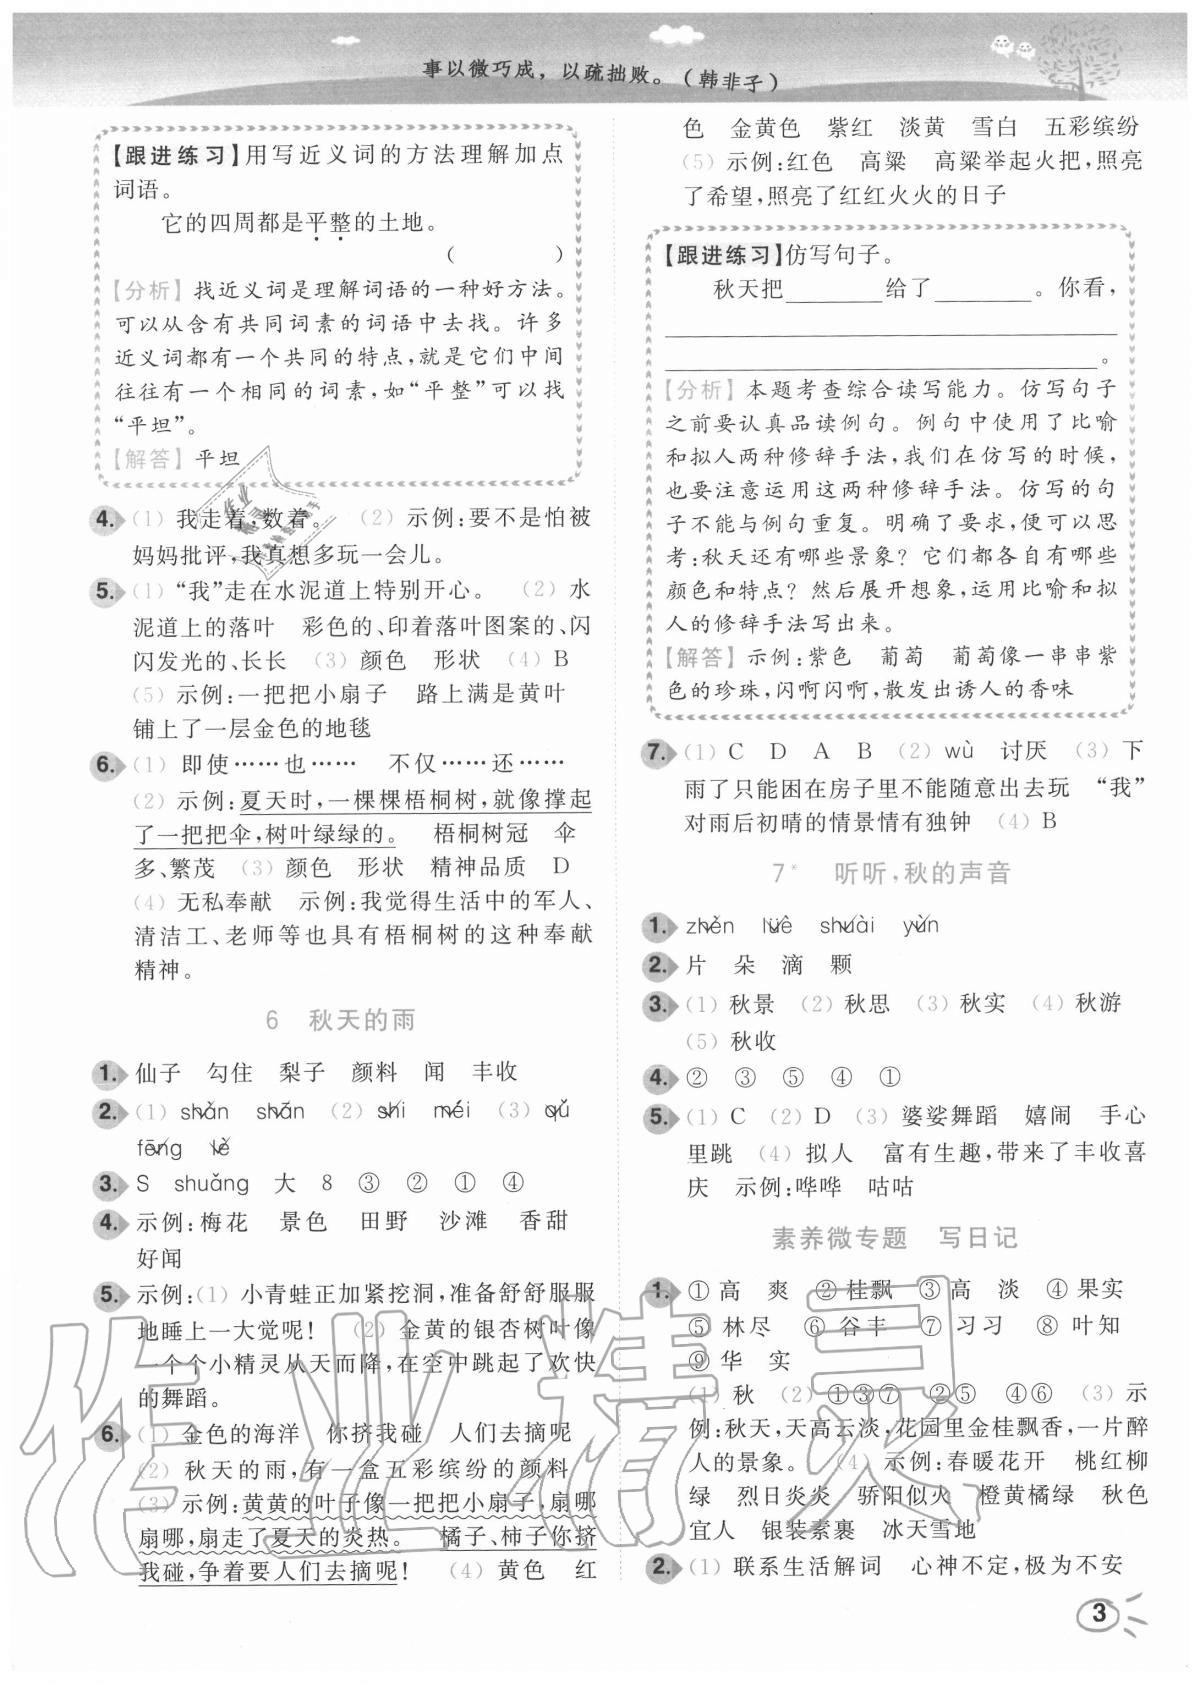 事以微巧成，以疏拙败。（韩非子）
【跟进练习】用写近义词的方法理解加点
词语。
它的四周都是平整的土地。
（　　　　）
【分析】找近义词是理解词语的一种好方法。
可以从含有共同词素的词语中去找。许多
近义词都有一个共同的特点，就是它们中间
往往有一个相同的词素，如“平整”可以找
“平坦”。
【解答】平坦
4.（1）我走着，数着。　（2）示例：要不是怕被
妈妈批评，我真想多玩一会儿。
5.（1）“我”走在水泥道上特别开心。　（2）水
泥道上的落叶　彩色的、印着落叶图案的、闪
闪发光的、长长　（3）颜色　形状　（4）B
（5）示例：一把把小扇子　路上满是黄叶
铺上了一层金色的地毯
6.（1）即使……也……　不仅……还……
（2）示例：夏天时，一棵棵梧桐树，就像撑起
了一把把伞，树叶绿绿的。　梧桐树冠　伞
多、繁茂　（3）颜色　形状　精神品质　D
（4）无私奉献　示例：我觉得生活中的军人、
清洁工、老师等也具有梧桐树的这种奉献
精神。
6　秋天的雨
1. 仙子　勾住　梨子　颜料　闻　丰收
2.（1）shàn　shān　（2）shi　méi　（3）qǔ
fēng　lè
3. S　shuǎng　大　8　③　②　①　④
4. 示例：梅花　景色　田野　沙滩　香甜
好闻
5. 示例：（1）小青蛙正加紧挖洞，准备舒舒服服
地睡上一大觉呢！　（2）金黄的银杏树叶像
一个个小精灵从天而降，在空中跳起了欢快
的舞蹈。
6.（1）金色的海洋　你挤我碰　人们去摘呢
（2）秋天的雨，有一盒五彩缤纷的颜料
（3）示例：黄黄的叶子像一把把小扇子，扇哪
扇哪，扇走了夏天的炎热。　橘子、柿子你挤
我碰，争着要人们去摘呢！　（4）黄色　红
色　金黄色　紫红　淡黄　雪白　五彩缤纷
（5）示例：红色　高粱　高粱举起火把，照亮
了希望，照亮了红红火火的日子
【跟进练习】仿写句子。
秋天把________给了________。你看，
________________________________
________________________________。
【分析】本题考查综合读写能力。仿写句子
之前要认真品读例句。例句中使用了比喻
和拟人两种修辞手法，我们在仿写的时候，
也要注意运用这两种修辞手法。仿写的句
子不能与例句重复。明确了要求，便可以思
考：秋天还有哪些景象？它们都各自有哪些
颜色和特点？然后展开想象，运用比喻和拟
人的修辞手法写出来。
【解答】示例：紫色　葡萄　葡萄像一串串紫
色的珍珠，闪啊闪啊，散发出诱人的香味
7.（1）C　D　A　B　（2）wù　讨厌　（3）下
雨了只能困在房子里不能随意出去玩　“我”
对雨后初晴的情景情有独钟　（4）B
7*　听听，秋的声音
1. zhěn　lüê　shuài　yùn
2. 片　朵　滴　颗
3.（1）秋景　（2）秋思　（3）秋实　（4）秋游
（5）秋收
4. ②　③　⑤　④　①
5.（1）C　（2）D　（3）婆娑舞蹈　嬉闹　手心
里跳　（4）拟人　富有生趣，带来了丰收喜
庆　示例：哗哗　咕咕
素养微专题　写日记
1. ①高　爽　②桂飘　③高　淡　④果实
⑤林尽　⑥谷丰　⑦习习　⑧叶知
⑨华　实
（1）秋　（2）①③⑦　②⑤　④⑥　（3）示
例：秋天，天高云淡，花园里金桂飘香，一片醉
人的景象。　（4）示例：春暖花开　桃红柳
绿　烈日炎炎　骄阳似火　橙黄橘绿　秋色
宜人　银装素裹　冰天雪地
2.（1）联系生活解词　心神不定，极为不安
3
作业精灵